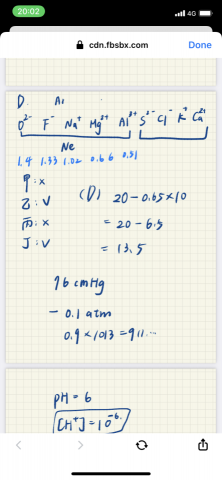 20:02
4G
cdn.fbsbx.com
Done
D. Ar
O²⁻ F⁻ Na⁺ Mg²⁺ Al³⁺ S²⁻ Cl⁻ K⁺ Ca²⁺
Ne
1.4 1.33 1.02 0.66 0.51
甲:x
乙:V
丙:x
丁:V
(D) 20-0.65×10
= 20-6.5
= 13.5
76 cmHg
- 0.1 atm
0.9×1013=911...
pH = 6
[H⁺]=10⁻⁶